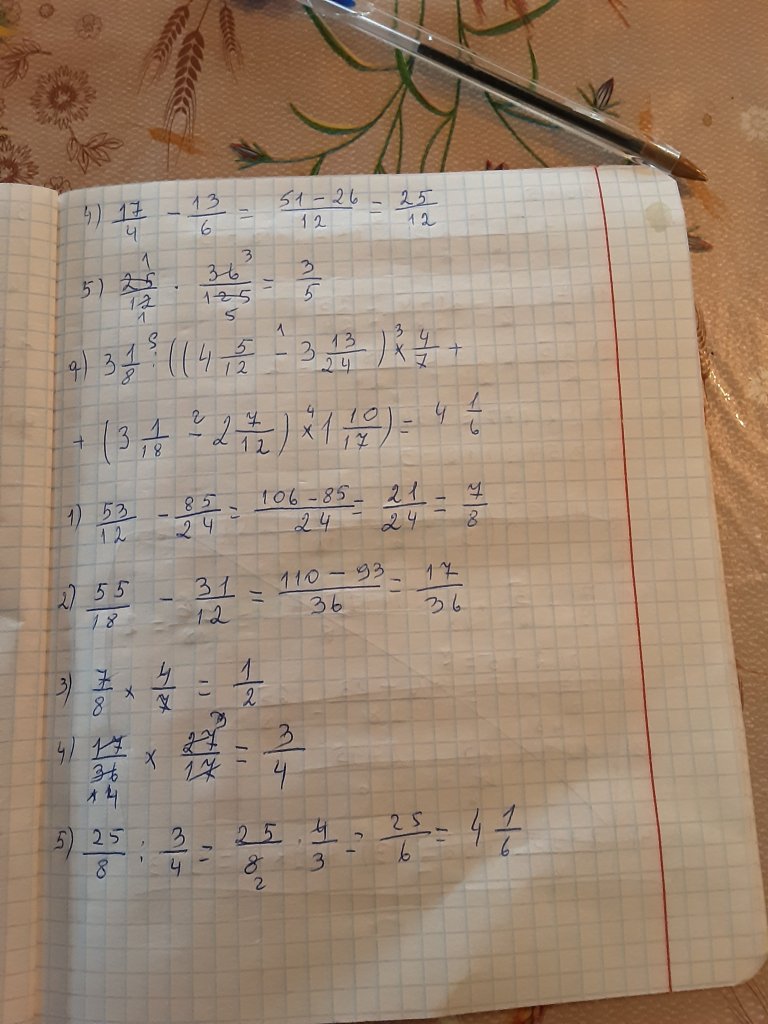 4) 17/4 - 13/6 = 51-26/12 = 25/12
5) 25/12 · 36/125 = 3/5
g) 3 1/8 : ((4 5/12 - 3 13/24) × 4/7 +
+ (3 1/18 - 2 7/12) × 1 10/17) = 4 1/6
1) 53/12 - 85/24 = 106-85/24 = 21/24 = 7/8
2) 55/18 - 31/12 = 110-93/36 = 17/36
3) 7/8 × 4/7 = 1/2
4) 17/36 × 27/17 = 3/4
5) 25/8 : 3/4 = 25/8 · 4/3 = 25/6 = 4 1/6